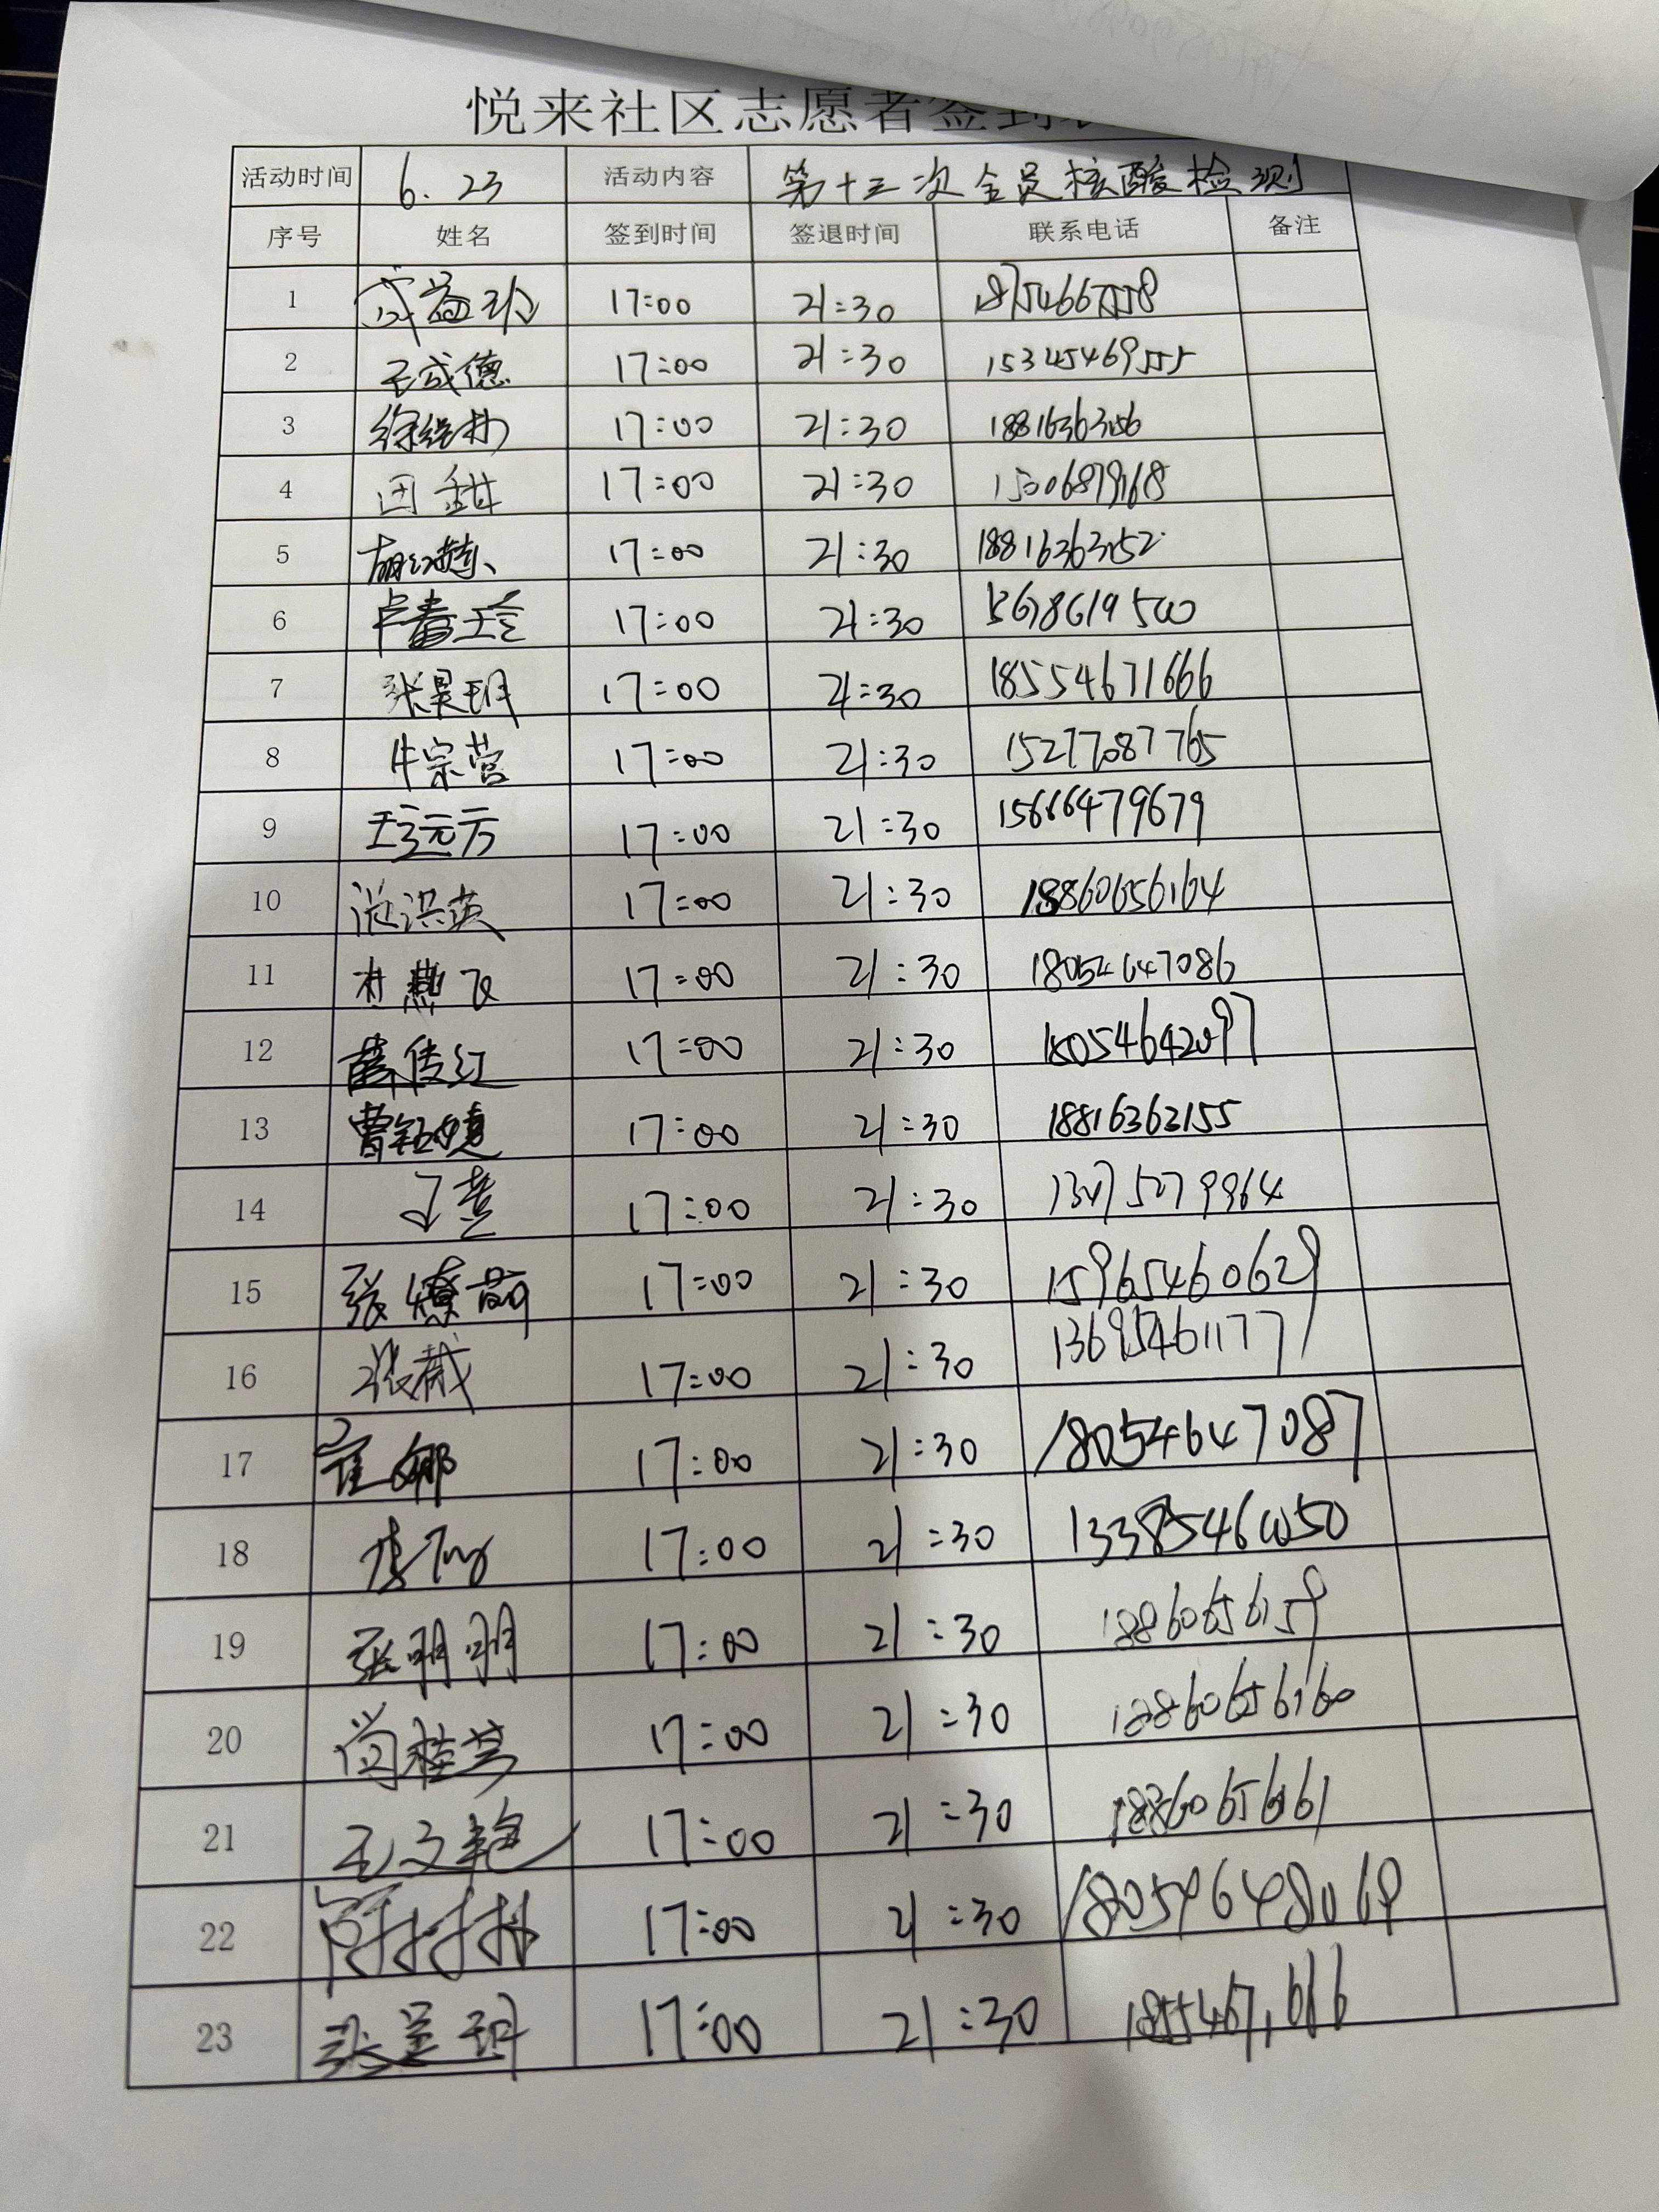 悦来社区志愿者签到
活动时间 6.23 活动内容 第十三次全员核酸检测
序号 姓名 签到时间 签退时间 联系电话 备注
1 17:00 21:30
2 王成德 17:00 21:30 15345469555
3 17:00 21:30 18816363156
4 田甜 17:00 21:30
5 17:00 21:30 18816363152
6 卢春玲 17:00 21:30 15678619500
7 张昊玥 17:00 21:30 18554671666
8 牛宗营 17:00 21:30 15277087765
9 17:00 21:30 15666479679
10 17:00 21:30 18860656164
11 杜燕飞 17:00 21:30 18054647086
12 薛传红 17:00 21:30 18054642097
13 曹钰婕 17:00 21:30 18816363155
14 17:00 21:30
15 17:00 21:30 15965460629
16 张薇 17:00 21:30 13695461177
17 崔娜 17:00 21:30 18054647087
18 17:00 21:30
19 张明明 17:00 21:30 18860656159
20 尚桂芳 17:00 21:30 18860656160
21 王文艳 17:00 21:30 18860656161
22 17:00 21:30 18054648068
23 17:00 21:30